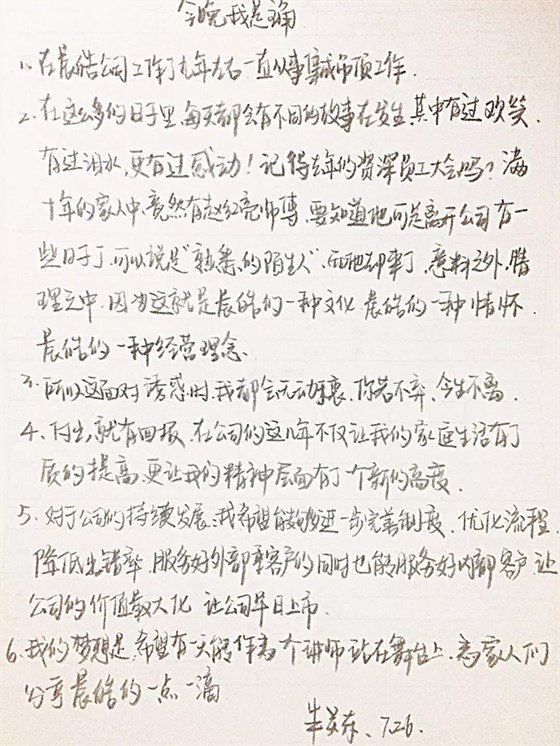 今晚我是谁
1、在晨皓公司工作了九年左右一直从事集成吊顶工作.
2、在这么多的日子里,每天都会有不同的故事在发生,其中有过欢笑,
有过泪水,更有过感动!记得去年的资深员工大会吗?满
十年的家人中,竟然有赵红亮师傅,要知道他可是离开公司有一
些日子了,可以说是"熟悉的陌生人",而他却来了,意料之外,情
理之中,因为这就是晨皓的一种文化,晨皓的一种情怀.
晨皓的一种经营理念.
3、所以这面对诱惑时,我都会无动于衷,你若不弃,今生不离.
4、付出就有回报,在公司的这几年不仅让我们家庭生活有了
质的提高,更让我的精神层面有了一个新的高度.
5、对于公司的持续发展,我希望能够进一步完善制度,优化流程,
降低出错率,服务好外部客户的同时也能服务好内部客户,让
公司的价值最大化,让公司早日上市.
6、我的梦想是,希望有一天能作为一个讲师站在舞台上,为家人们
分享晨皓的一点一滴
7.26.